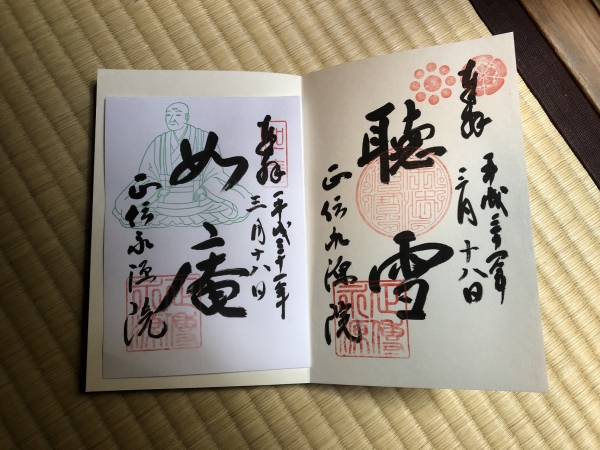 奉拝
平成三十一年
三月十八日
聴雪
正伝永源院
奉拝
平成三十一年
三月十八日
如庵
正伝永源院